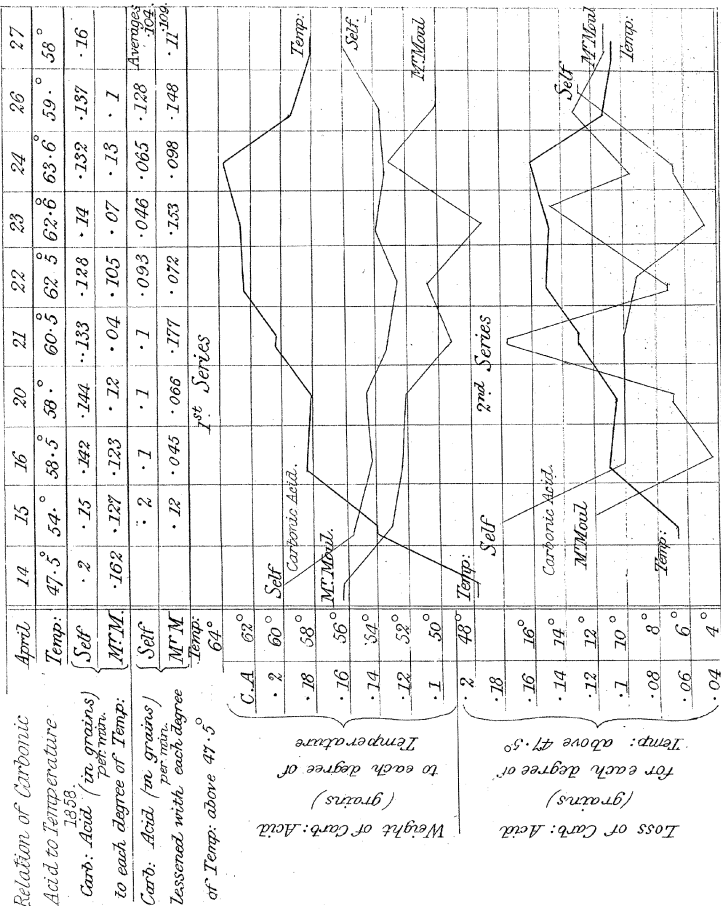 Relation of Carbonic
Acid to Temperature
1858.
April 14 15 16 20 21 22 23 24 26 27
Temp: 47·5° 54·° 58·5° 58·° 60·5° 62 5° 62·6° 63·6° 59·° 58°
Carb: Acid (in grains)
per min.
to each degree of Temp:
Self ·2 ·15 ·142 ·144 ·133 ·128 ·14 ·132 ·137 ·16
Mr M. ·162 ·127 ·123 ·12 ·04 ·105 ·07 ·13 ·1
Carb: Acid (in grains)
per min.
lessened with each degree
of Temp: above 47·5°
Averages
Self ·2 ·1 ·1 ·1 ·093 ·046 ·065 ·128 ·104
Mr M ·12 ·045 ·066 ·177 ·072 ·153 ·098 ·148 ·11 ·109
1st Series
Weight of Carb: Acid
(grains)
to each degree of
Temperature
Temp:
64°
C.A 62°
·2 60°
·18 58°
·16 56°
·14 54°
·12 52°
·1 50°
·2 48°
Self
Carbonic Acid.
Mr Moul.
Temp:
Temp:
Self
Mr Moul
2nd Series
Loss of Carb: Acid
(grains)
for each degree of
Temp: above 47·5°
·18 16°
·16 14°
·14 12°
·12 10°
·1 8°
·08 6°
·06 4°
·04
Self
Carbonic Acid.
Mr Moul
Temp:
Self
Mr Moul
Temp: